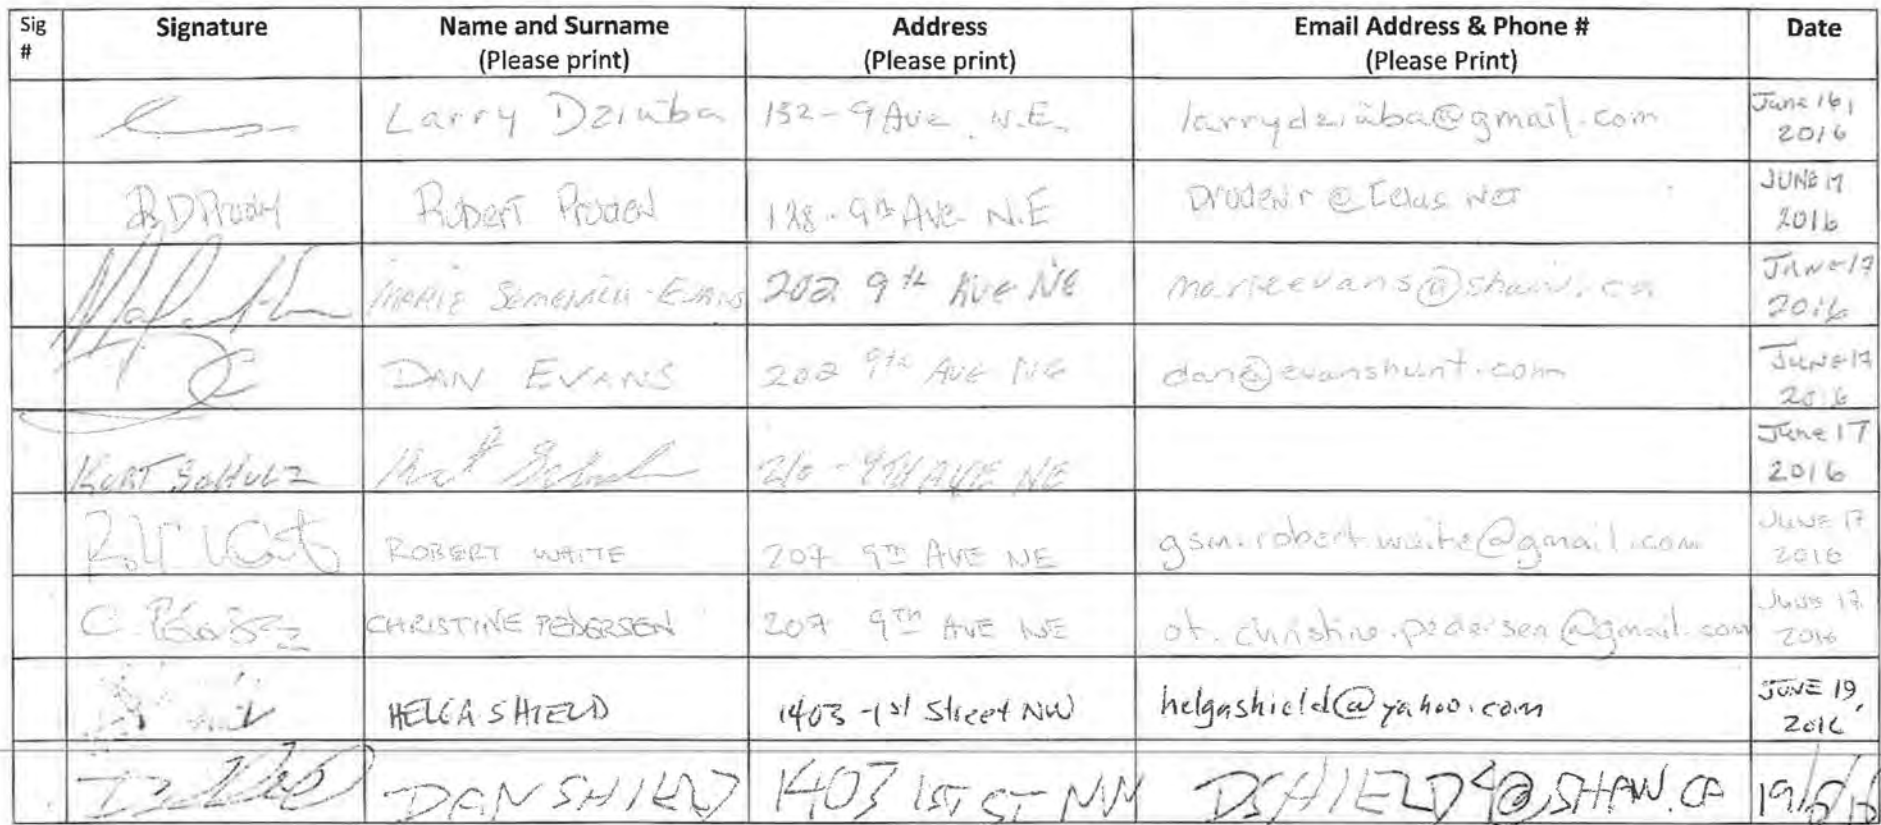 Sig # Signature Name and Surname (Please print) Address (Please print) Email Address & Phone # (Please Print) Date
Larry Dziuba 132-9 Ave. N.E. larrydziuba@gmail.com June 16, 2016
Robert Pruden 128-9th Ave N.E prudenr@telus net JUNE 17 2016
MARIE SEMENICK-EVANS 202 9th AVE NE marieevans@shaw.ca JUNE 17 2016
DAN EVANS 202 9th AVE NE dan@evanshunt.com JUNE 17 2016
KURT SCHULZ 210-9TH AVE NE June 17 2016
ROBERT WAITE 207 9TH AVE NE gsm.robert.waite@gmail.com JUNE 17 2016
CHRISTINE PEDERSEN 207 9TH AVE NE ot.christine.pedersen@gmail.com JUNE 17 2016
HELGA SHIELD 1403-1st Street NW helgashield@yahoo.com JUNE 19, 2016
DAN SHIELD 1403 1ST ST NW DSHIELD4@SHAW.CA 19/6/16